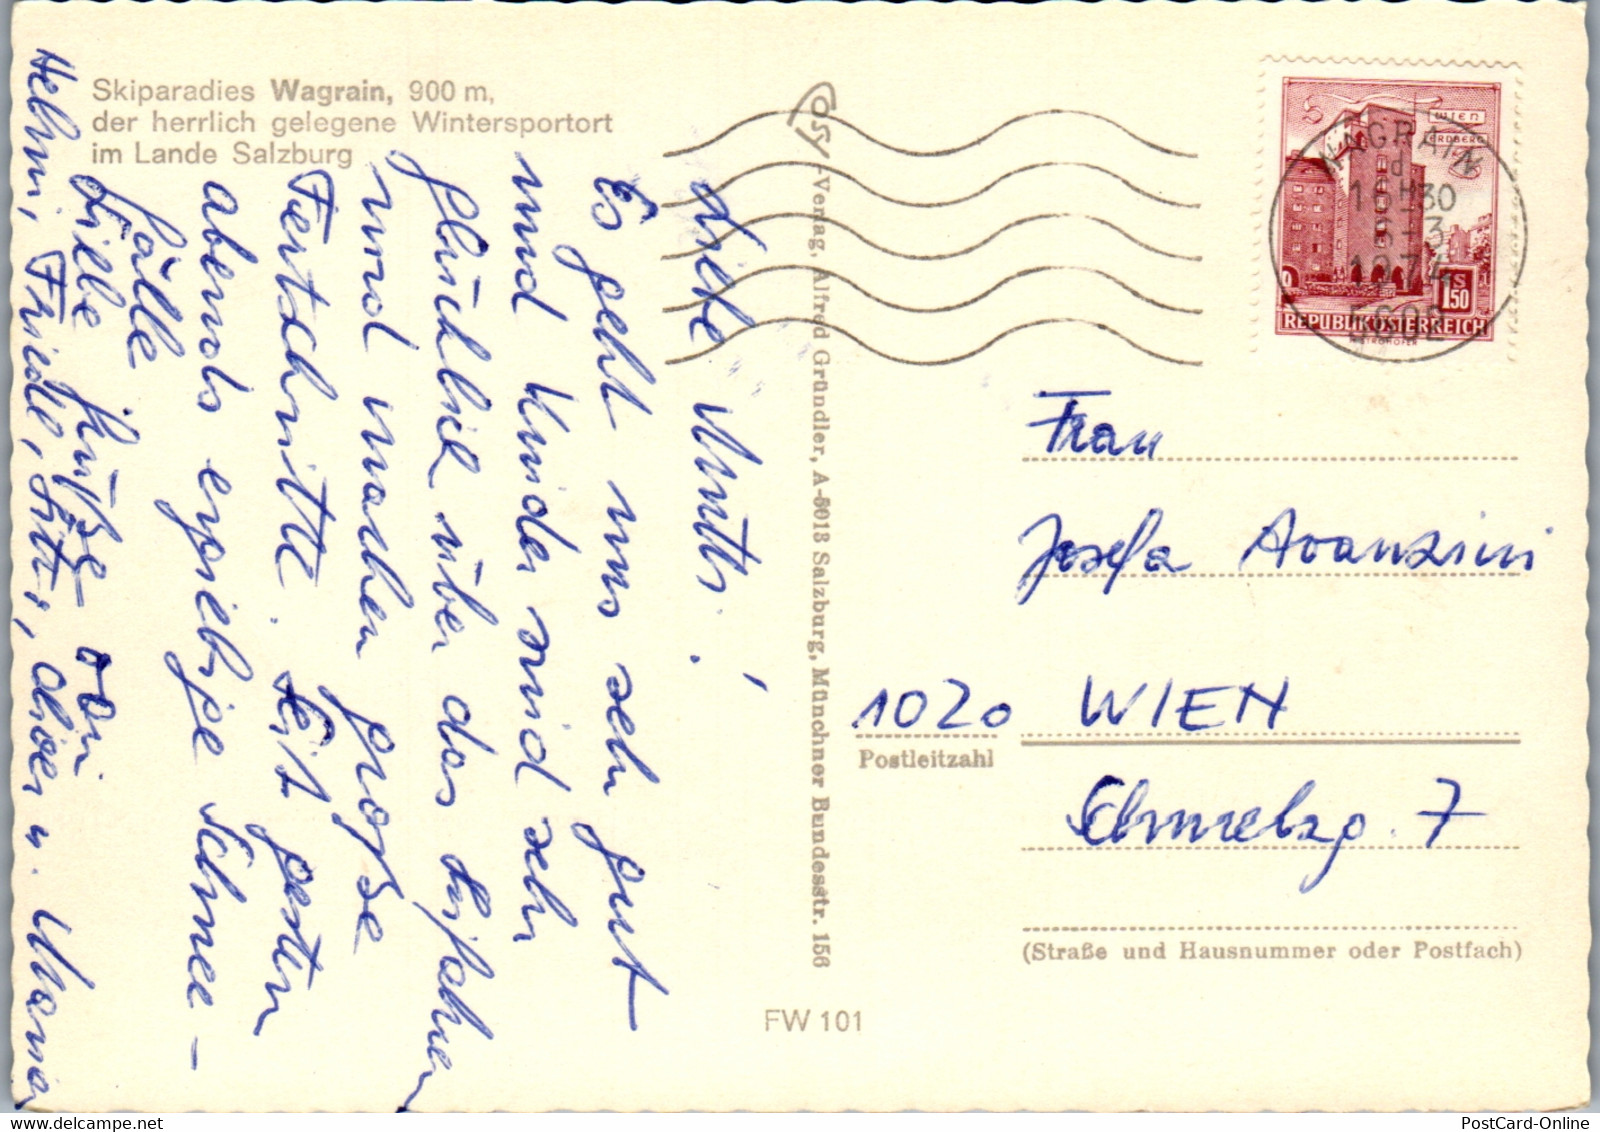 Skiparadies Wagrain, 900 m,
der herrlich gelegene Wintersportort
im Lande Salzburg
Liebe Mutti!
Es geht uns sehr gut
und Kinder sind sehr
glücklich über das Skifahren
und machen große
Fortschritte. Seit gestern
abends ergiebige Schnee-
fälle
Liebe Grüße von
Helmi, Friedl,
Cosy-Verlag, Alfred Gründler, A-5013 Salzburg, Münchner Bundesstr. 156
FW 101
WIEN
ERDBERG
1S50
REPUBLIK ÖSTERREICH
WAGRAIN
d
16H30
6-3
1974
5602
Frau
Josefa Avanzini
1020 WIEN
Postleitzahl
Schmelzg. 7
(Straße und Hausnummer oder Postfach)
PostCard-Online